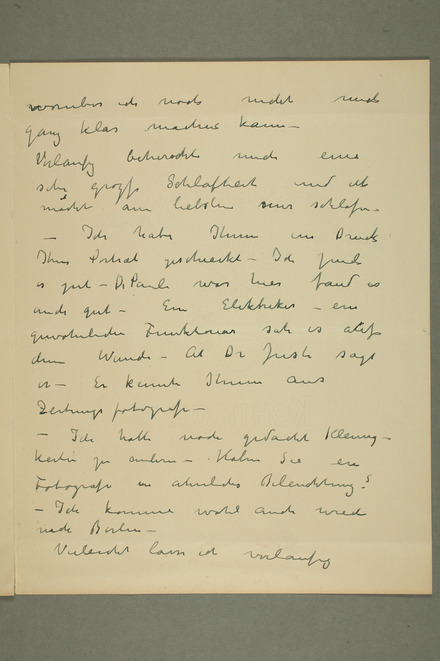 worüber ich noch nicht mich
ganz klar machen kann –
Vorläufig beherrscht mich eine
sehr große Schlafheit und ich
möcht am liebsten nur schlafen –
– Ich habe Ihnen im Druck
Ihre Portrait geschickt – Ich find
es gut – Dr Pauli war hier fand es
auch gut – Ein Elektriker – ein
gewöhnlicher Funktionär sah es auf
der Wand – Ah Dr Juste sagt
er – Er kannte Ihnen aus
Zeitungsfotografie –
– Ich hatte noch gedacht Kleinig-
keiten zu ändern – Haben Sie eine
Fotografie in ähnlicher Beleuchtung?
– Ich komme wohl auch wied
nach Berlin –
Vielleicht lasse ich vorläufig